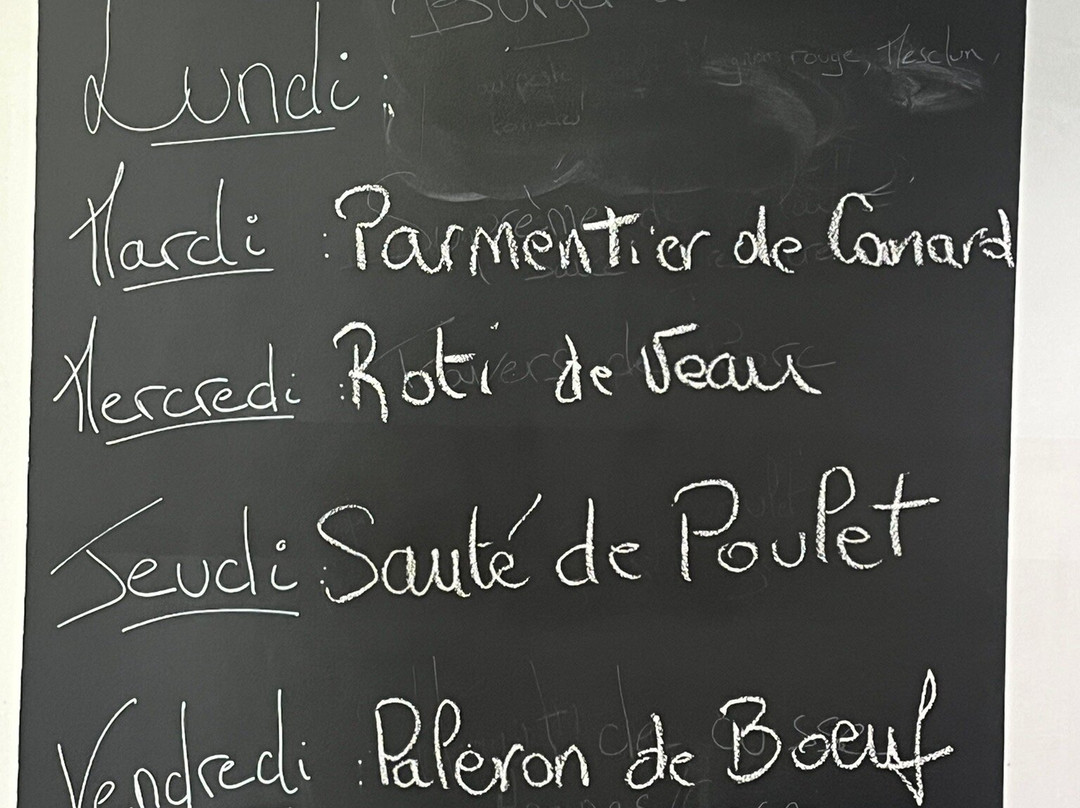 Burger
Lundi :
rouge, Mesclun,
Mardi : Parmentier de Canard
Mercredi : Roti de Veau
Jeudi : Sauté de Poulet
Vendredi : Paleron de Boeuf